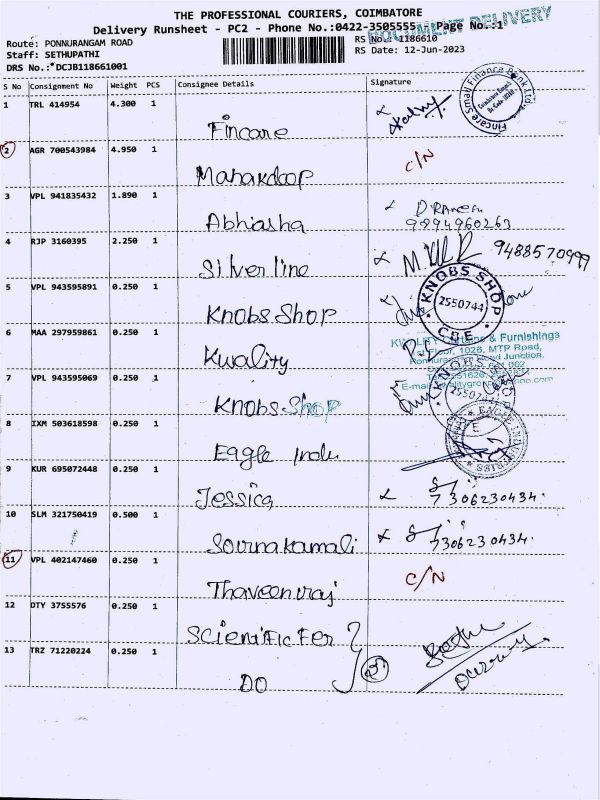 THE PROFESSIONAL COURIERS, COIMBATORE
Delivery Runsheet - PC2 - Phone No.:0422-3505555 Page No.:1
DOCUMENT DELIVERY
Route: PONNURANGAM ROAD
RS No.: 1186610
Staff: SETHUPATHI
RS Date: 12-Jun-2023
DRS No.:*DCJB118661001
S No Consignment No Weight PCS Consignee Details Signature
1 TRL 414954 4.300 1 Fincare
Fincare Small Finance Bank Ltd
2 AGR 700543984 4.950 1 Mahardoop C/N
3 VPL 941835432 1.890 1 Abhiasha
9894960263
4 RJP 3160395 2.250 1 Silverline 9488570999
5 VPL 943595891 0.250 1 Knobs Shop
KNOBS SHOP
2550744
CBE
6 MAA 297959861 0.250 1 Kwality
& Furnishings
1026, MTP Road,
Junction,
002
7 VPL 943595069 0.250 1 Knobs Shop
KNOBS SHOP
8 IXM 503618598 0.250 1 Eagle Indu
9 KUR 695072448 0.250 1 Jessica 7306230434.
10 SLM 321750419 0.500 1 Sournakamali 7306230434.
11 VPL 402147460 0.250 1 Thaveenraj C/N
12 DTY 3755576 0.250 1 Scientific Fer
13 TRZ 71220224 0.250 1 DO